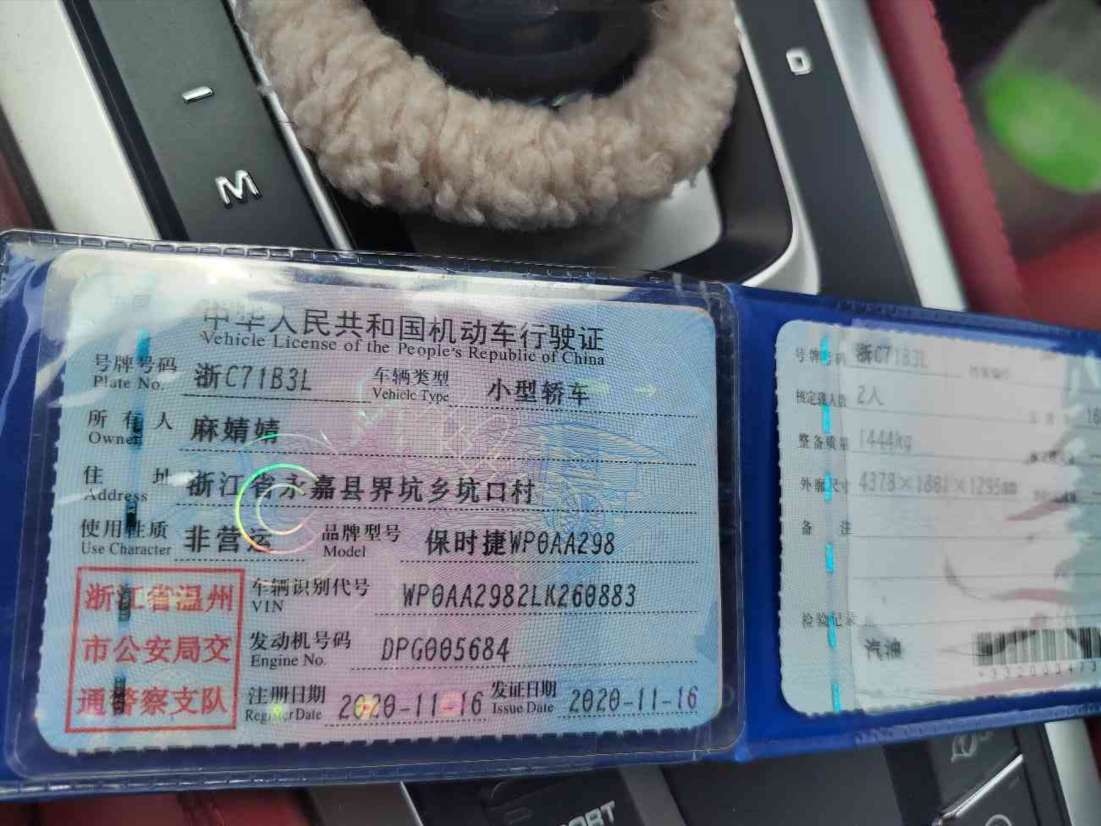 M
中华人民共和国机动车行驶证
Vehicle License of the People's Republic of China
号牌号码 浙C71B3L 车辆类型 小型轿车
Plate No. Vehicle Type
所有人 麻婧婧
Owner
住址 浙江省永嘉县界坑乡坑口村
Address
使用性质 非营运 品牌型号 保时捷WP0AA298
Use Character Model
浙江省温州
市公安局交
通警察支队
车辆识别代号 WP0AA2982LK260883
VIN
发动机号码 DPG005684
Engine No.
注册日期 2020-11-16 发证日期 2020-11-16
Register Date Issue Date
号牌号码 浙C71B3L
核定载人数 2人
整备质量 1444kg
外廓尺寸
备注
检验记录
汽油